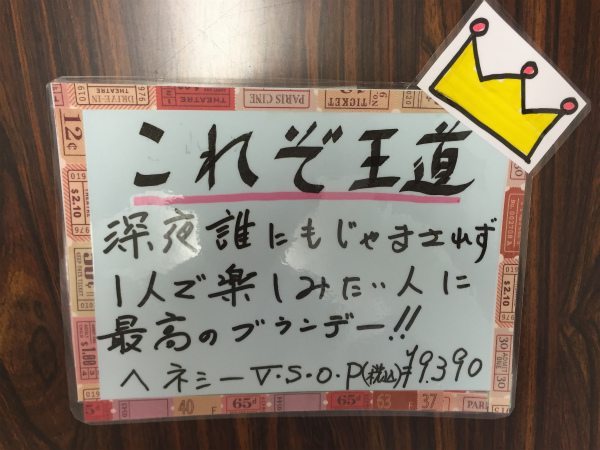 これぞ王道
深夜誰にもじゃまされず
1人で楽しみたい人に
最高のブランデー!!
ヘネシーV・S・O・P(税込)¥9.390
DRIVE-IN THEATRE
PARIS CINE
TICKET
12¢
$2.10
$2.10
$1.00
40 F
65d
65d
63
37
PARIS